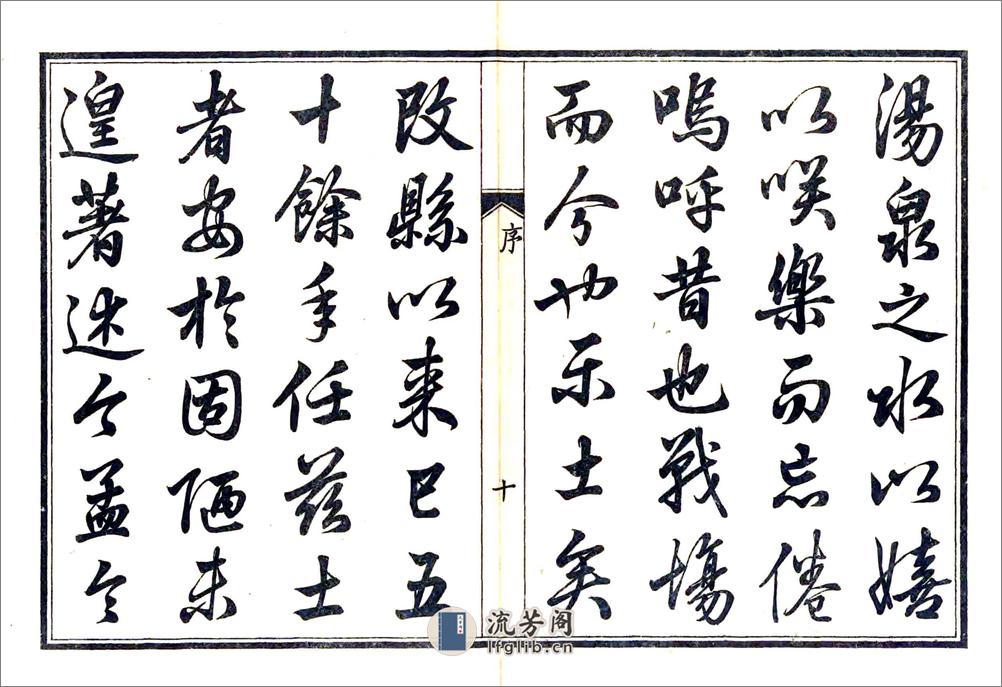 湯泉之水以嬉
以咲樂而忘倦
嗚呼昔也戰場
而今也乐土矣
序
十
改縣以来已五
十餘年任茲土
者安於固陋未
遑著述今孟令
流芳阁
lfglib.cn